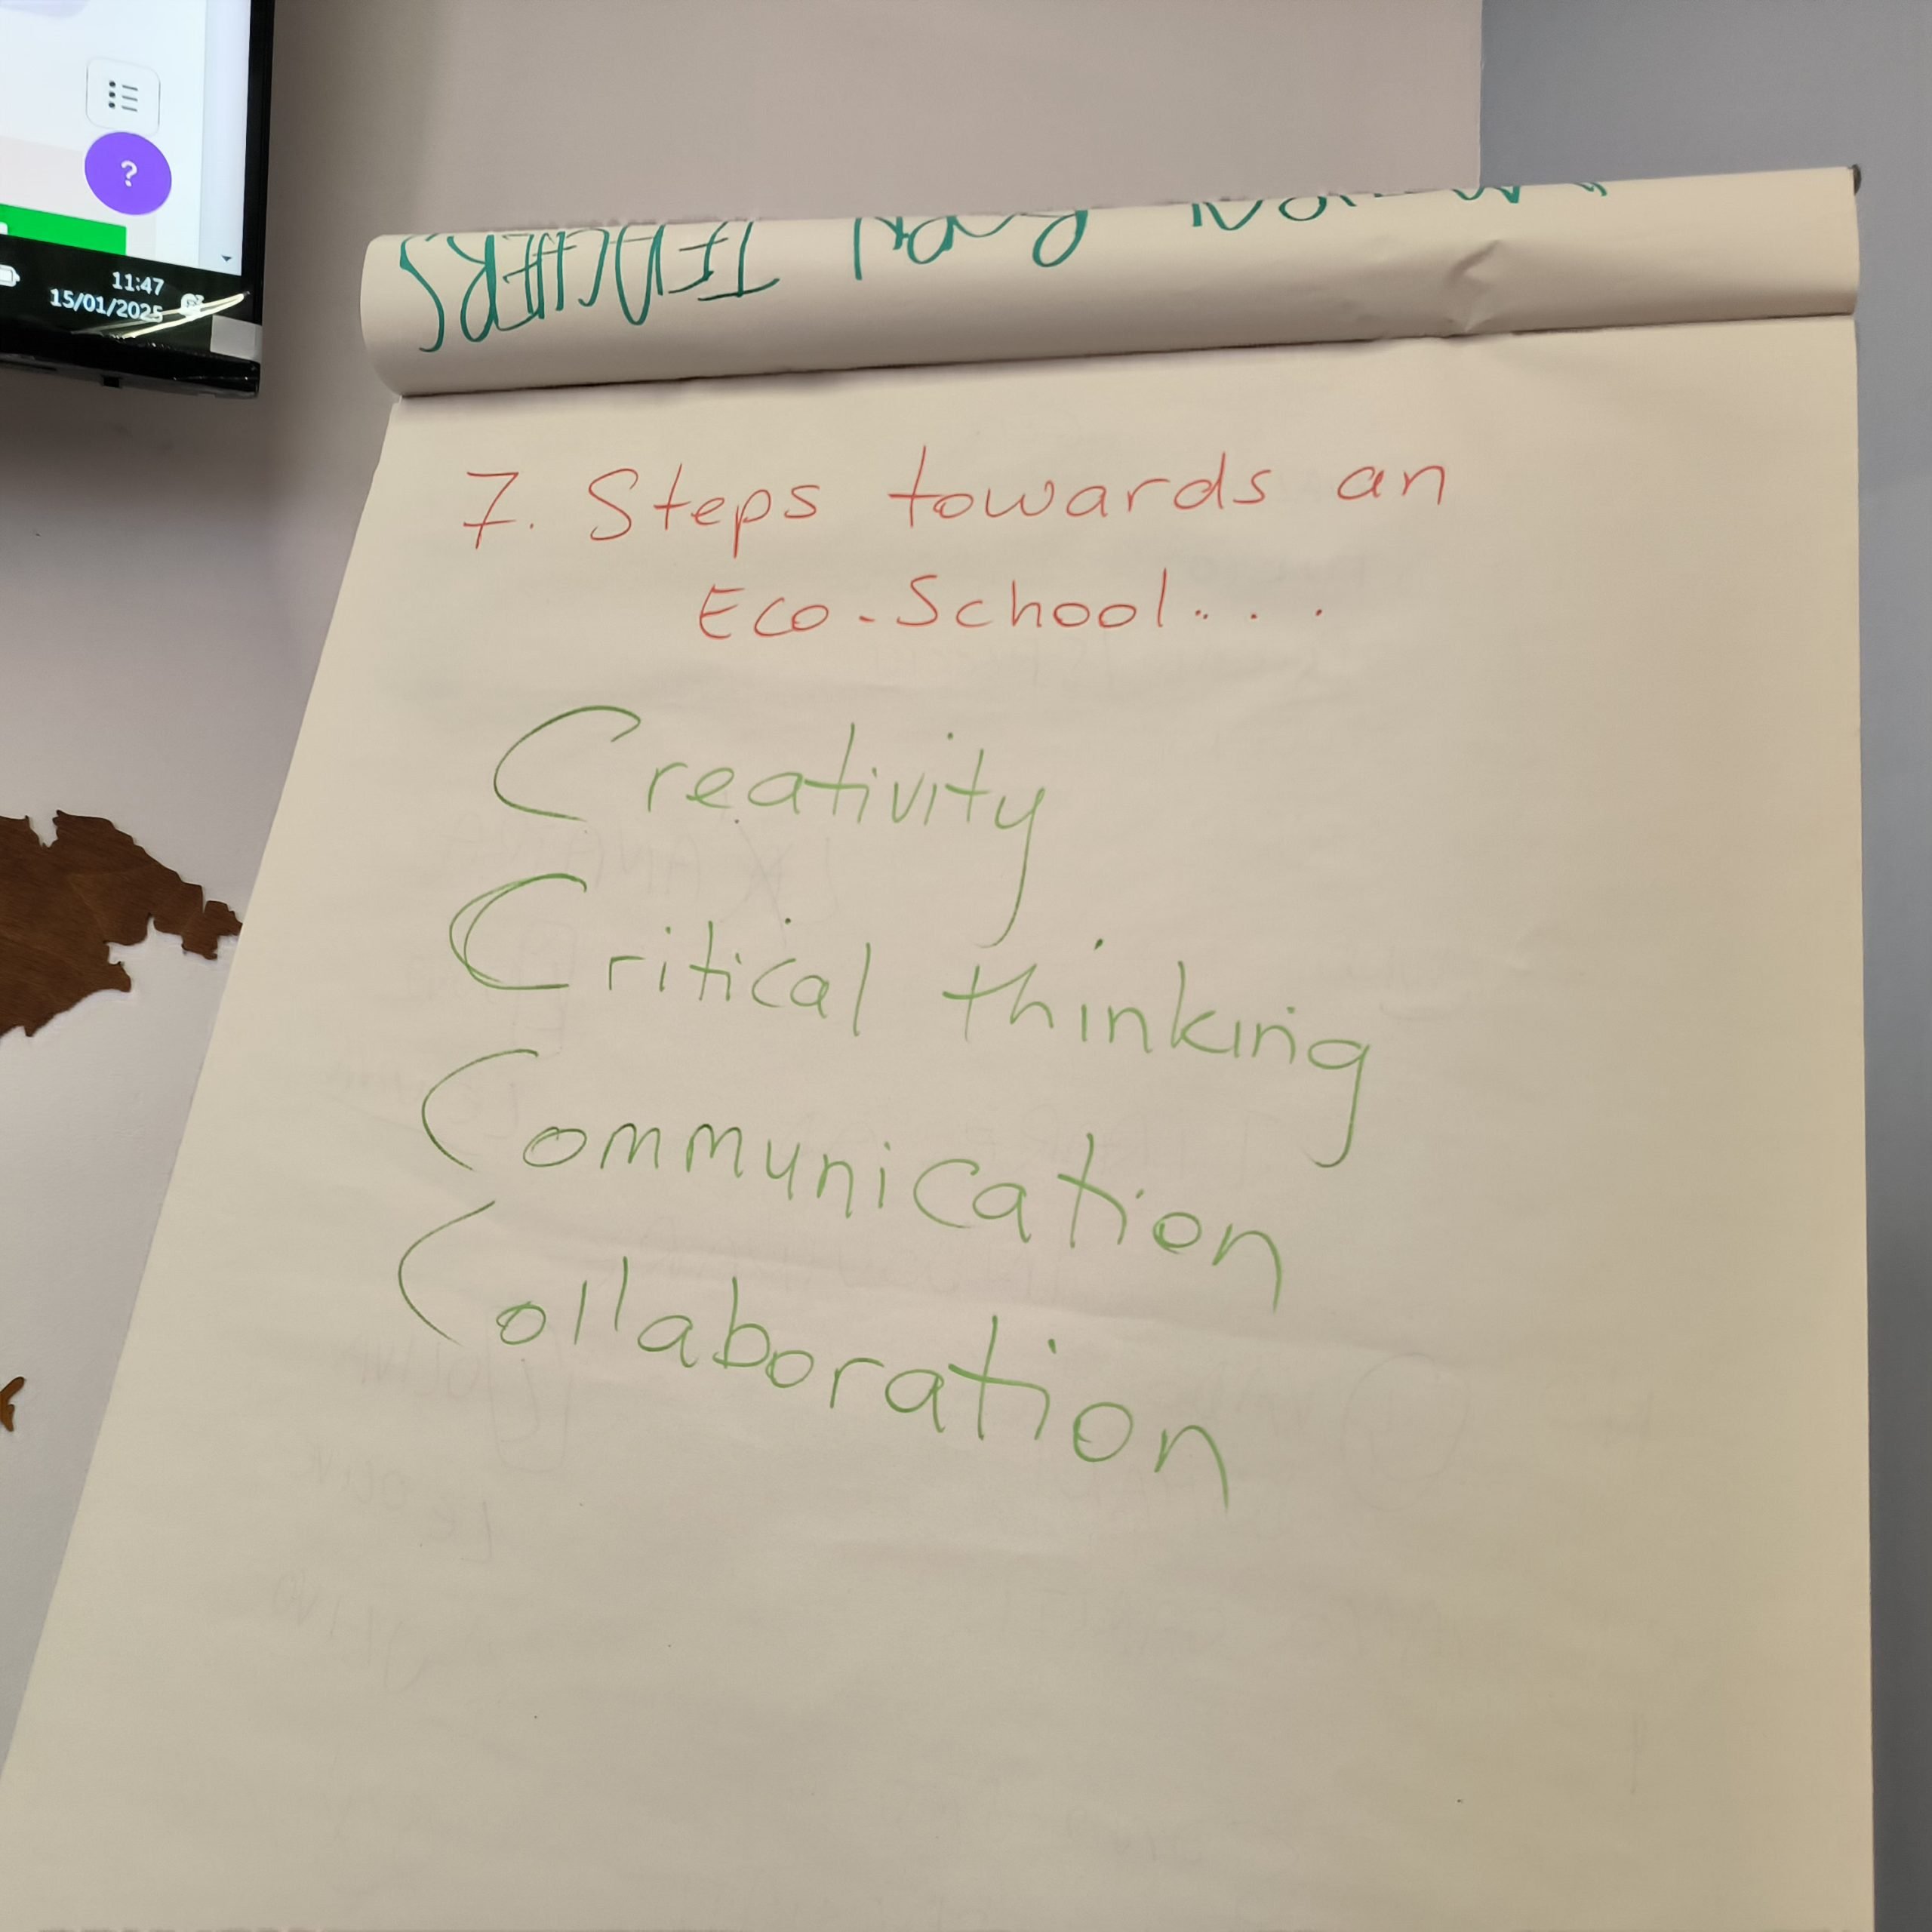 ?
11:47
15/01/2025
TEACHERS
7. Steps towards an
Eco-School...
Creativity
Critical thinking
Communication
Collaboration